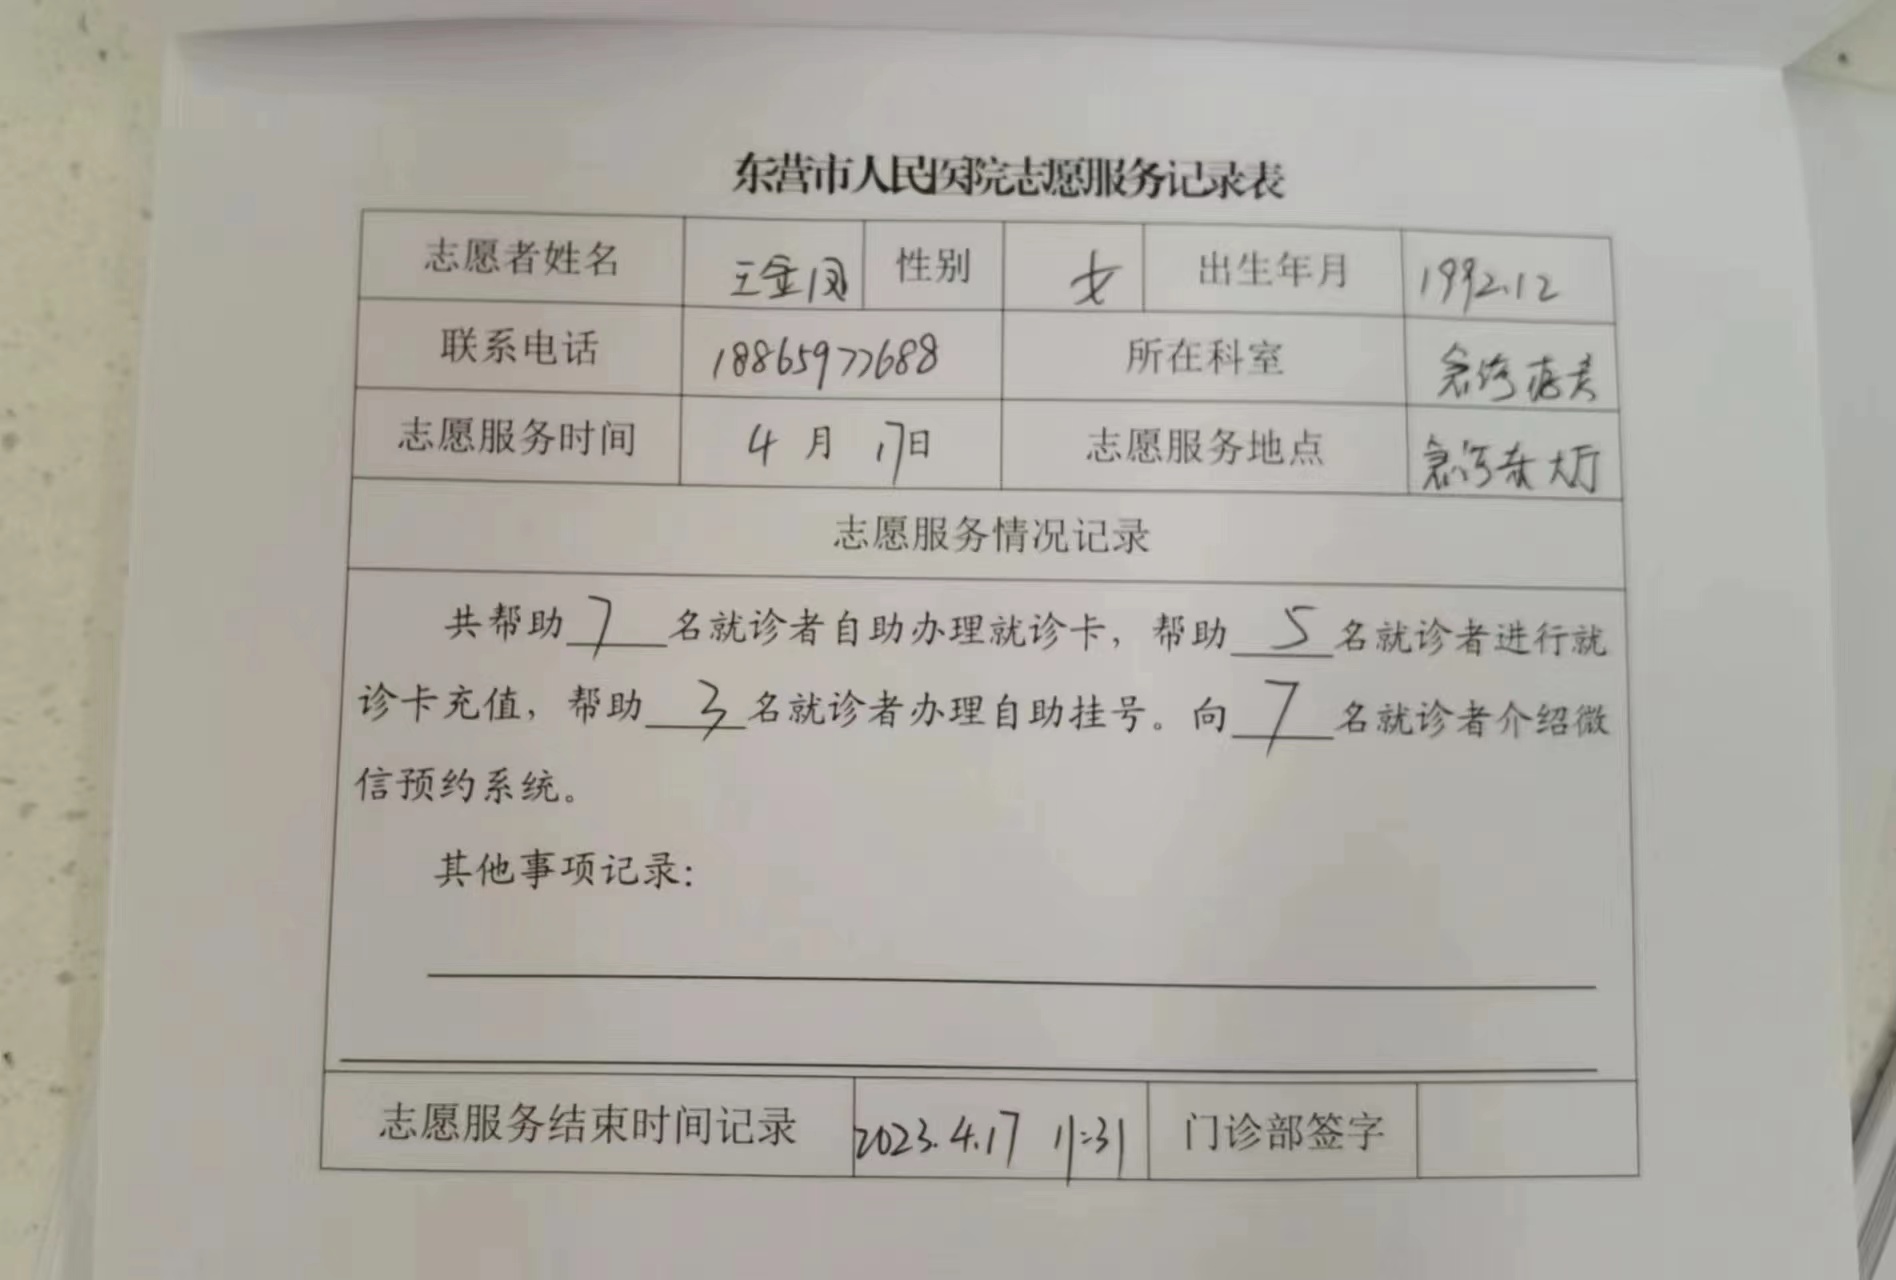 东营市人民医院志愿服务记录表
志愿者姓名 王金凤 性别 女 出生年月 1992.12
联系电话 18865977688 所在科室 急诊
志愿服务时间 4 月 17日 志愿服务地点 急诊东大厅
志愿服务情况记录
共帮助 7 名就诊者自助办理就诊卡，帮助 5 名就诊者进行就
诊卡充值，帮助 3 名就诊者办理自助挂号。向 7 名就诊者介绍微
信预约系统。
其他事项记录：
志愿服务结束时间记录 2023.4.17 11:31 门诊部签字